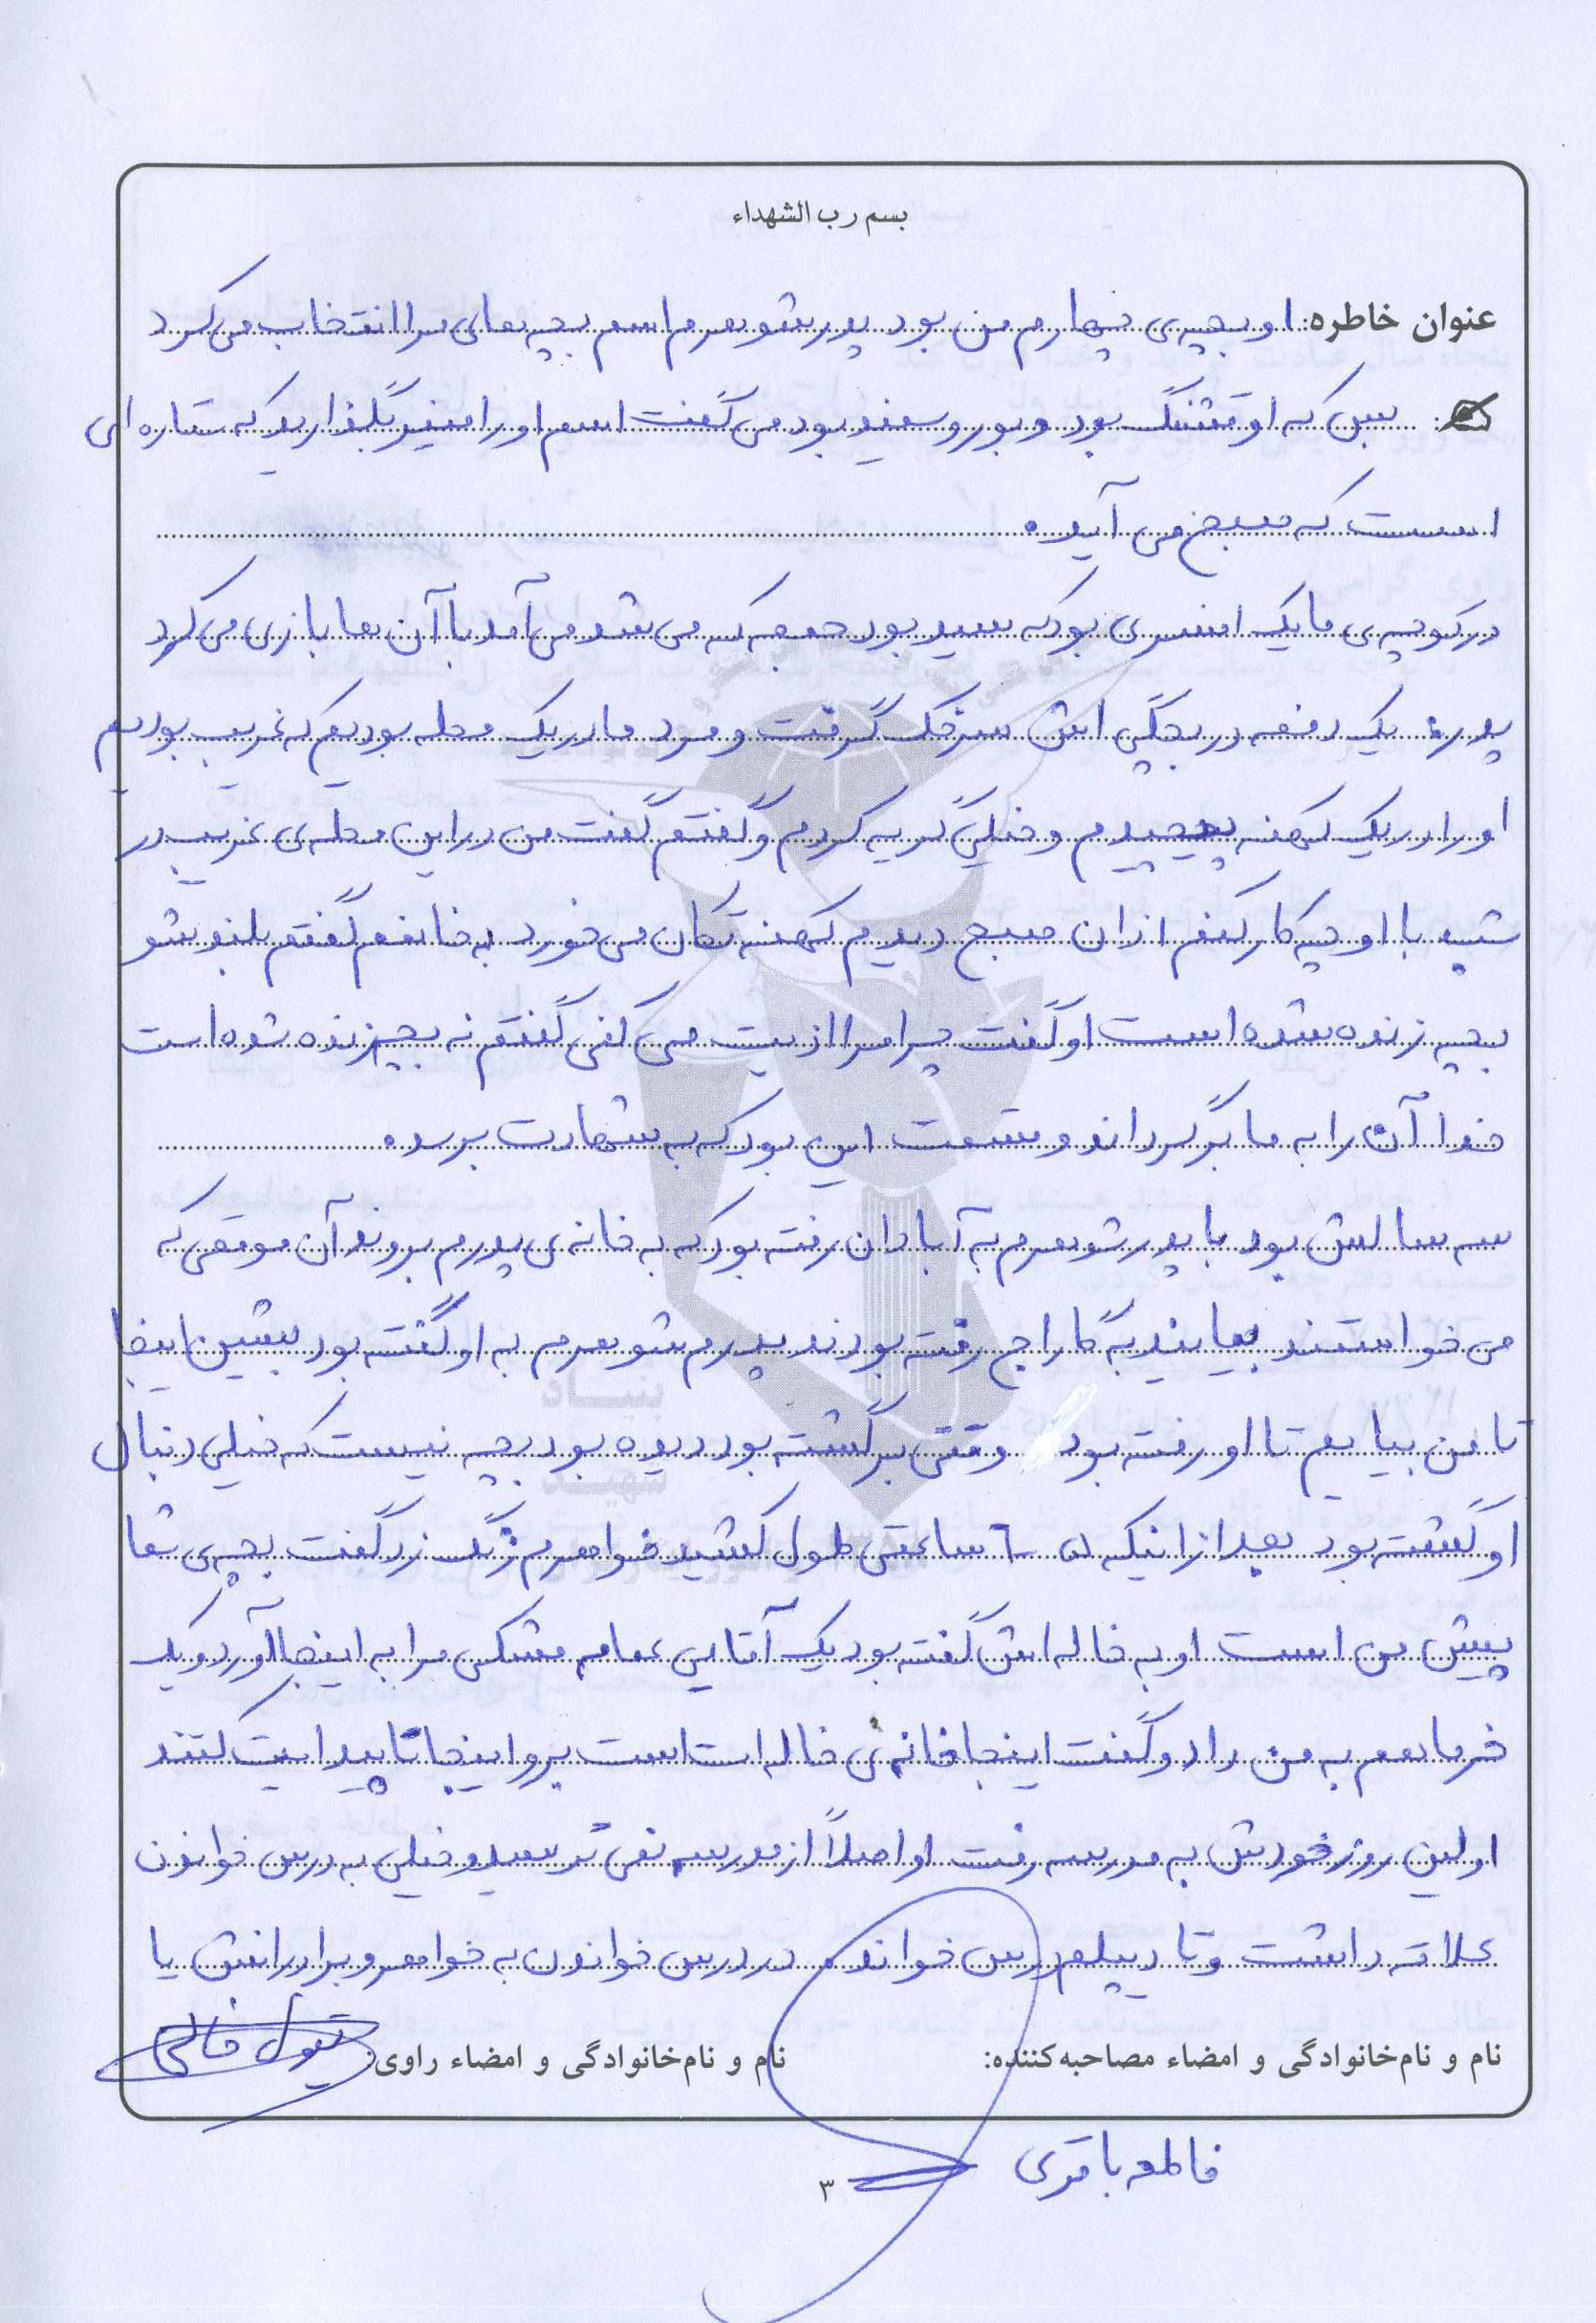 بسم رب الشهداء
عنوان خاطره: او بچه‌ی چهارم من بود پدر شوهرم اسم بچه‌های مرا انتخاب می‌کرد
که او قشنگ بود و بور و سفید بود می‌گفت اسم او را منیر بگذارید که ستاره‌ای
است که صبح می‌آید.
در کوچه‌ی ما یک افسری بود که سید بود جمعه که می‌شد می‌آمد با آن‌ها بازی می‌کرد
یک دفعه در بچگی‌اش سرخک گرفت و مرد ما در یک محله بودیم که غریب بودیم
او را در یک کهنه پیچیدم و خیلی گریه کردم و گفتم گفت من در این محله‌ی غریب در
شب با او چه کار کنم اذان صبح دیدم کهنه تکان می‌خورد به خانمم گفتم بلند شو
بچه زنده شده است او گفت چرا مرا اذیت می‌کنی گفتم نه بچه زنده شده است
خدا آن را به ما برگرداند و قسمت این بود که به شهادت برسد.
سه سالش بود با پدر شوهرم به آبادان رفته بود که به خانه‌ی پدرم بروند آن موقعی که
می‌خواستند بیایند به گاراج رفته بودند پدرم شوهرم به او گفته بود بشین اینجا
تا من بیایم تا او رفته بود وقتی برگشته بود دیده بود بچه نیست که خیلی دنبال
او گشته بود بعد از اینکه ۵-۶ ساعتی طول کشید خواهرم زنگ زد گفت بچه‌ی شما
پیش من است او به خاله‌اش گفته بود یک آقایی عمامه مشکی مرا به اینجا آورد و یک
خرما هم به من داد و گفت اینجا خانه‌ی خاله‌ات است برو اینجا تا پیدایت کنند
اولین روز خودش به مدرسه رفت او اصلاً از مدرسه نمی‌ترسید و خیلی به درس خواندن
علاقه داشت و تا دیپلم درس خواند در درس خواندن به خواهر و برادرانش یا
نام و نام‌خانوادگی و امضاء مصاحبه‌کننده: نام و نام‌خانوادگی و امضاء راوی:
فاطمه باقری
۳
بنیاد
شهید